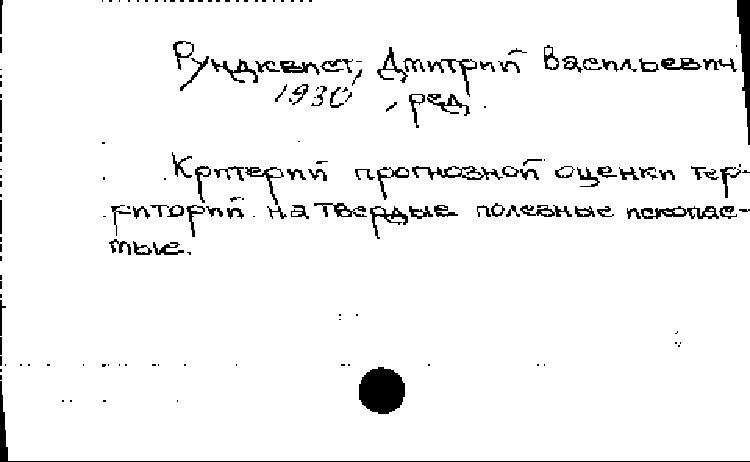 Рундквист, Дмитрий Васильевич
1930 , ред.
Критерий прогнозной оценки тер-
риторий на твердые полезные ископае-
мые.